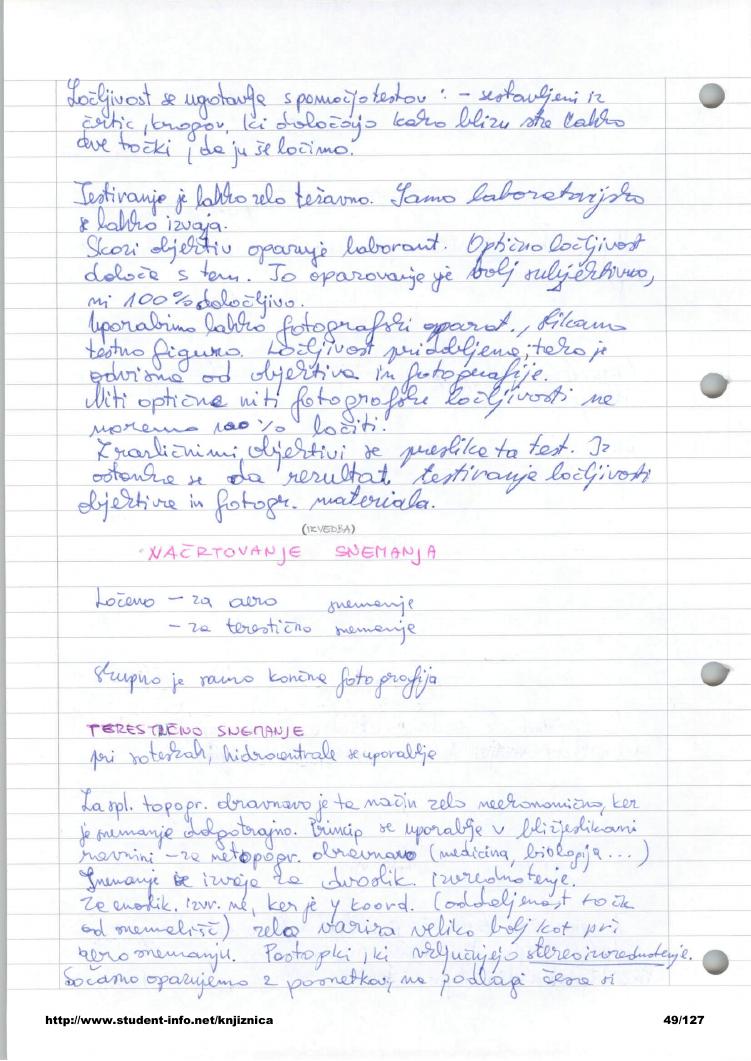 Ločljivost se ugotavlja s pomočjo testov : - sestavljeni iz
črtic, krogov, ki določajo kako blizu sta lahko
dve točki, da ju še ločimo.
Testiranje je lahko zelo težavno. Samo laboratorijsko
se lahko izvaja.
Skozi objektiv opazuje laborant. Optično ločljivost
določa s tem. To opazovanje je bolj subjektivno,
ni 100% določljivo.
Uporabimo lahko fotografski aparat, slikamo
testno figuro. Ločljivost pridobljena; tako je
odvisna od objektiva in fotografije.
Niti optične niti fotografske ločljivosti ne
moremo 100% ločiti.
Z različnimi objektivi se preslika ta test. Iz
ostanka se da rezultat testiranja ločljivosti
objektiva in fotogr. materiala.
(IZVEDBA)
NAČRTOVANJE SNEMANJA
Ločeno - za aero snemanje
- za terestično snemanje
Skupno je samo končna fotografija
TERESTIČNO SNEMANJE
pri soteskah, hidrocentrale se uporablja
Za spl. topogr. obravnavo je ta način zelo neekonomično, ker
je snemanje dolgotrajno. Princip se uporablja v bližjeslikovni
ravnini - za netopogr. obravnavo (medicina, biologija ...)
Snemanje se izvaja za dvoslik. izvrednotenje.
Za enoslik. izvr. ne, ker je y koord. (oddaljenost točk
od snemališč) zelo varira veliko bolj kot pri
aerosnemanju. Postopki, ki vključujejo stereoizvrednotenje.
Sočasno opazujemo 2 posnetkov, na podlagi česa si
http://www.student-info.net/knjiznica
49/127